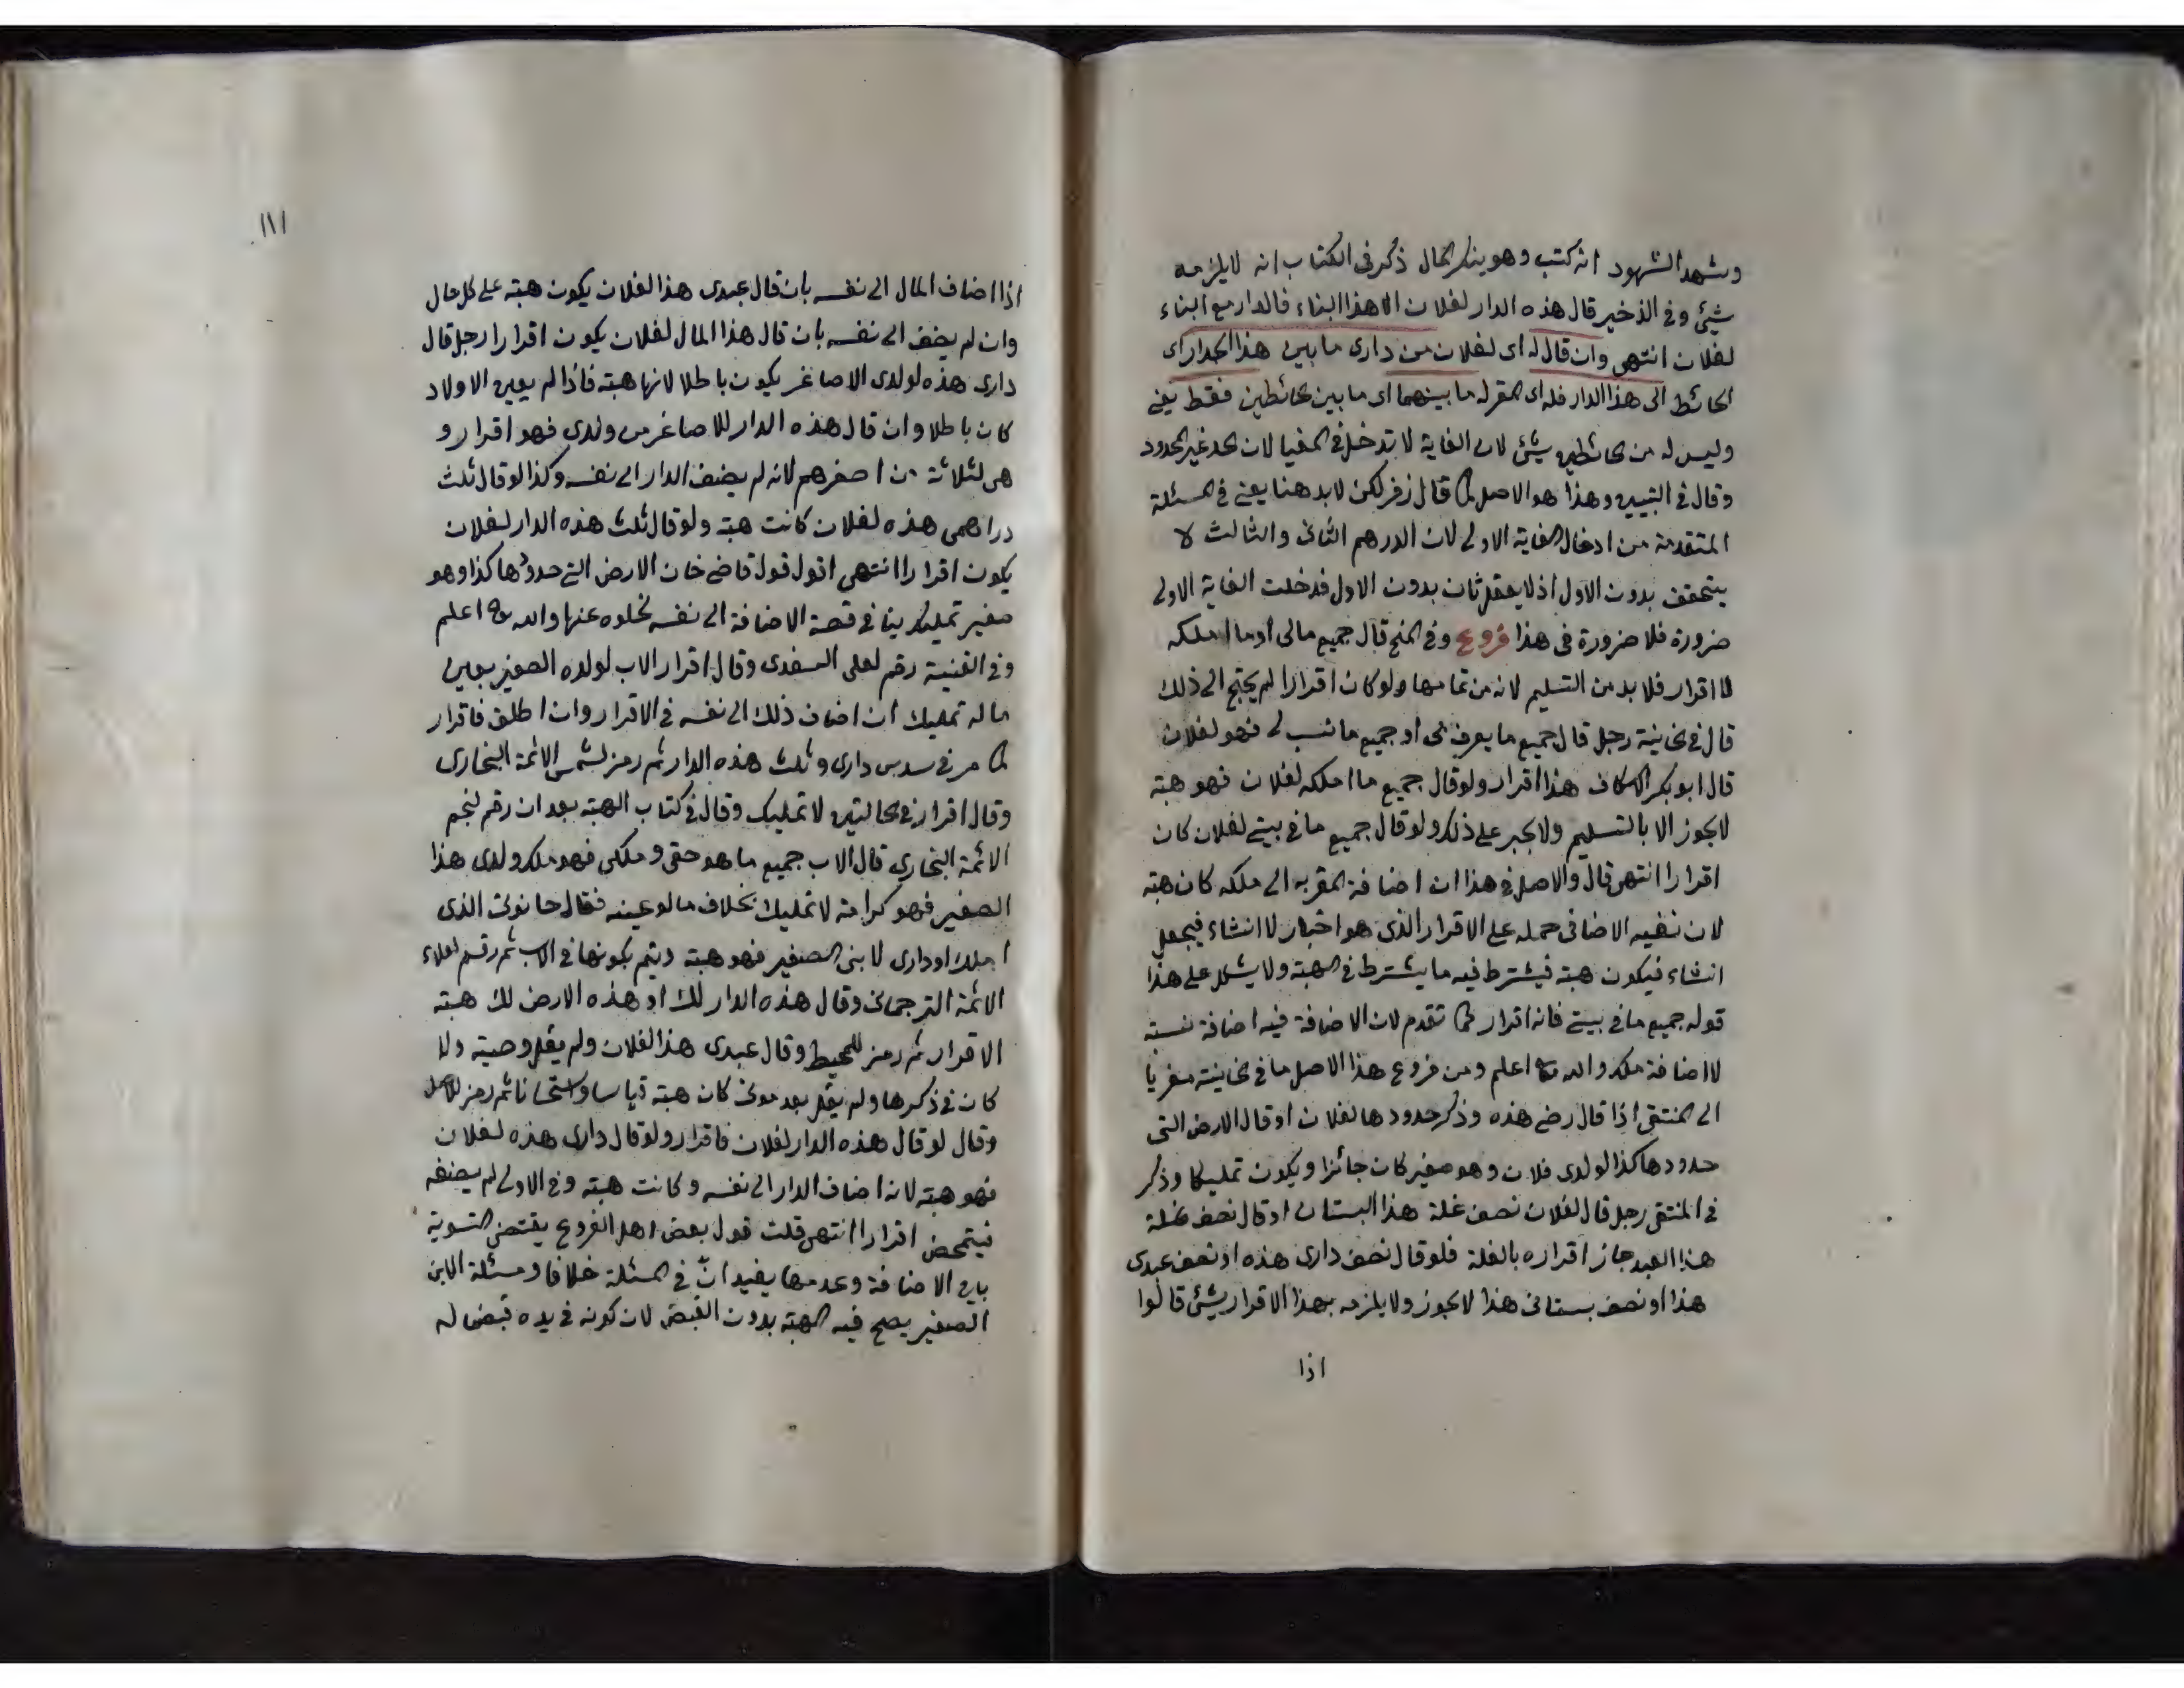 وشهد الشهود انه كتب وهو ينكر المال ذكر في الكتاب انه لا يلزمه
شيئ وفي الذخير قال هذه الدار لفلان الا هذا البناء فالدار مع البناء
لفلان انتهى وان قال له اى لفلان من دارى ما بين هذا الجدار اى
الحائط الى هذا الدار فله اى المقر له ما بينهما اى ما بين الحائطين فقط يعنى
وليس له من الحائطين شيئ لان الغاية لا تدخل في المغيا لان الحد غير المحدود
وقال في التبيين وهذا هو الاصل كما قال زفر لكن لا بد هنا يعنى في المسئلة
المتقدمة من ادخال الغاية الاولى لان الدرهم الثانى والثالث لا
يتحقق بدون الاول اذ لا يعقل ثان بدون الاول فدخلت الغاية الاولى
ضرورة فلا ضرورة في هذا فروع وفي المنح قال جميع مالى او ما املكه
لا اقرار فلا بد من التسليم لانه من تمامها ولو كان اقرارا لم يحتج الى ذلك
قال في الخانية رجل قال جميع ما يعرف بى او جميع ما نسب لى فهو لفلان
قال ابو بكر الاسكاف هذا اقرار ولو قال جميع ما املكه لفلان فهو هبة
لا يجوز الا بالتسليم ولا يجبر على ذلك ولو قال جميع ما في بيتى لفلان كان
اقرارا انتهى قال والاصل في هذا ان اضافة المقر به الى ملكه كان هبة
لان نفيه الاضافى حمله على الاقرار الذى هو اخبار لا انشاء فيجعل
انشاء فيكون هبة فيشترط فيه ما يشترط في الهبة ولا يشكل على هذا
قوله جميع ما في بيتى فانه اقرار كما تقدم لان الاضافة فيه اضافة نسبة
لا اضافة ملك والله تعالى اعلم ومن فروع هذا الاصل ما في الخانية مغريا
الى المنتقى اذا قال رضى هذه وذكر حدودها لفلان او قال الارض التى
حدودها كذا لولدى فلان وهو صغير كان جائزا ويكون تمليكا وذكر
في المنتقى رجل قال لفلان نصف غلة هذا البستان او قال نصف غلة
هذا العبد جاز اقراره بالغلة فلو قال نصف دارى هذه او نصف عبدى
هذا او نصف بستانى هذا لا يجوز ولا يلزمه بهذا الاقرار شيئ قالوا
اذا
١١١
اذا اضاف المال الى نفسه بان قال عبدى هذا لفلان يكون هبة على كل حال
وان لم يضف الى نفسه بان قال هذا المال لفلان يكون اقرارا رجل قال
دارى هذه لولدى الاصاغر يكون باطلا لانها هبة فاذا لم يعين الاولاد
كان باطلا وان قال هذه الدار للاصاغر من ولدى فهو اقرار و
هى لثلاثة من اصغرهم لانه لم يضف الدار الى نفسه وكذا لو قال ثلث
دراهمى هذه لفلان كانت هبة ولو قال ثلث هذه الدار لفلان
يكون اقرارا انتهى اقول قول قاضى خان الارض التى حدودها كذا وهو
صغير تمليك ينا في قصة الاضافة الى نفسه لخلوه عنها والله تعالى اعلم
وفي القنية رقم لعلى السغدى وقال اقرار الاب لولده الصغير بعين
ماله تمليك ان اضاف ذلك الى نفسه في الاقرار وان اطلق فاقرار
كما مر في سدس دارى وثلث هذه الدار ثم رمز لشمس الائمة البخارى
وقال اقرار في الحالتين لا تمليك وقال في كتاب الهبة بعد ان رقم لنجم
الائمة البخارى قال الاب جميع ما هو حقى وملكى فهو ملك ولدى هذا
الصغير فهو كرامة لا تمليك بخلاف ما لو عينه فقال حانوتى الذى
املك او دارى لابنى الصغير فهو هبة ويتم بكونها في الاب ثم رقم لعلاء
الائمة الترجمانى وقال هذه الدار لك او هذه الارض لك هبة
الاقرار ثم رمز للمحيط وقال عبدى هذا لفلان ولم يقل وصية ولا
كان في ذكرها ولم يقل بعد موتى كان هبة قياسا واستحسانا ثم رمز للاصل
وقال لو قال هذه الدار لفلان فاقرار ولو قال دارى هذه لفلان
فهو هبة لانه اضاف الدار الى نفسه وكانت هبة وفي الاولى لم يضفه
فيتمحض اقرارا انتهى قلت قول بعض اهل الفروع يقتضى التسوية
بين الاضافة وعدمها يفيد ان في المسئلة خلافا ومسئلة الابن
الصغير يصح فيه الهبة بدون القبض لان كونه في يده قبض له